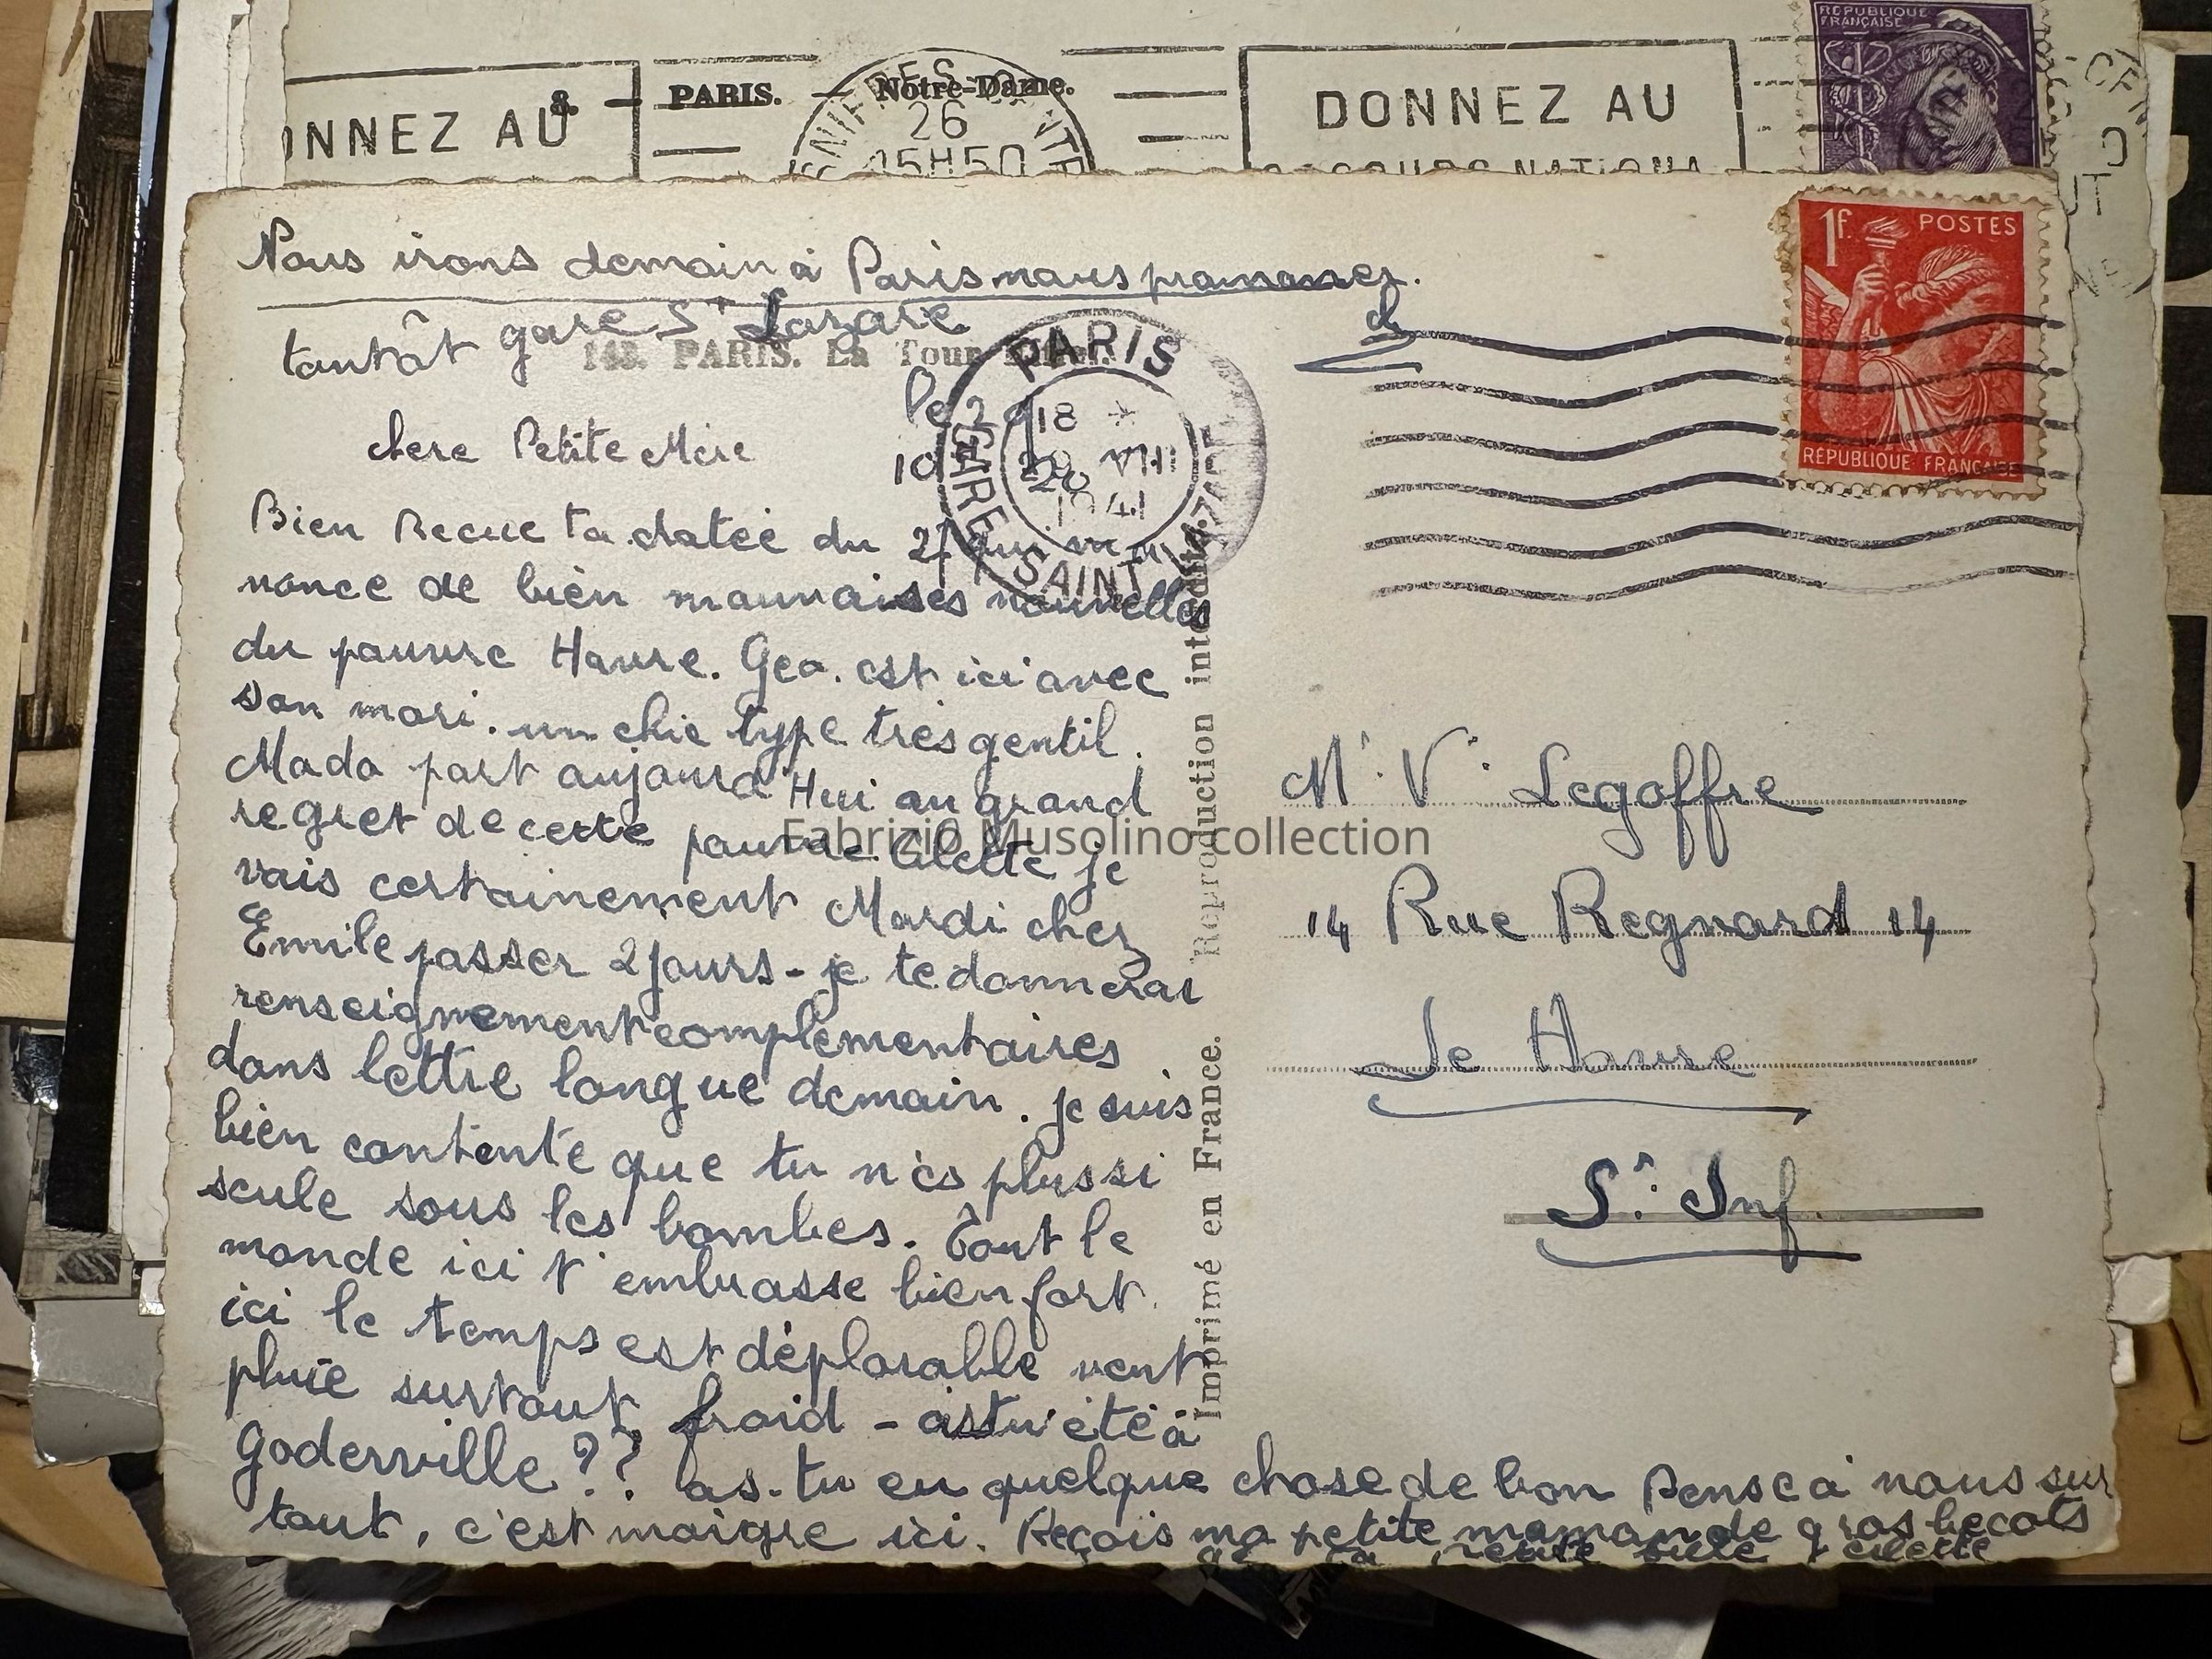 RÉPUBLIQUE
FRANÇAISE
NNEZ AU
8. — PARIS. — Notre-Dame.
26
15H50
DONNEZ AU
Nous irons demain à Paris nous promener.
tantôt gare St Lazare
148. PARIS. La Tour
1f. POSTES
RÉPUBLIQUE FRANÇAISE
PARIS
GARE SAINT
18 *
VIII
1941
chere Petite Mère
le 29
10
Bien Recue ta datée du 27 qui m'
nonce de bien mauvaises nouvelles
du pauvre Havre. Geo. est ici avec
son mari. un chic type très gentil.
Mado part aujourd'Hui au grand
regret de cette pauvre Cilette je
vais certainement Mardi chez
Emile passer 2 jours - je te donnerai
renseignement complémentaires
dans lettre longue demain. je suis
bien contente que tu n'es plus si
seule sous les bombes. Tout le
monde ici t'embrasse bien fort.
ici le temps est déplorable vent
pluie surtout froid - as tu été à
Goderville ?? as-tu eu quelque chose de bon Pense à nous sur
tout, c'est maigre ici. Reçois ma petite maman de gros becots
de ta
Imprimé en France. Reproduction interdite.
Me Ve Legoffre
14 Rue Regnard 14
Le Havre
Se. Inf.
Fabrizio Musolino collection